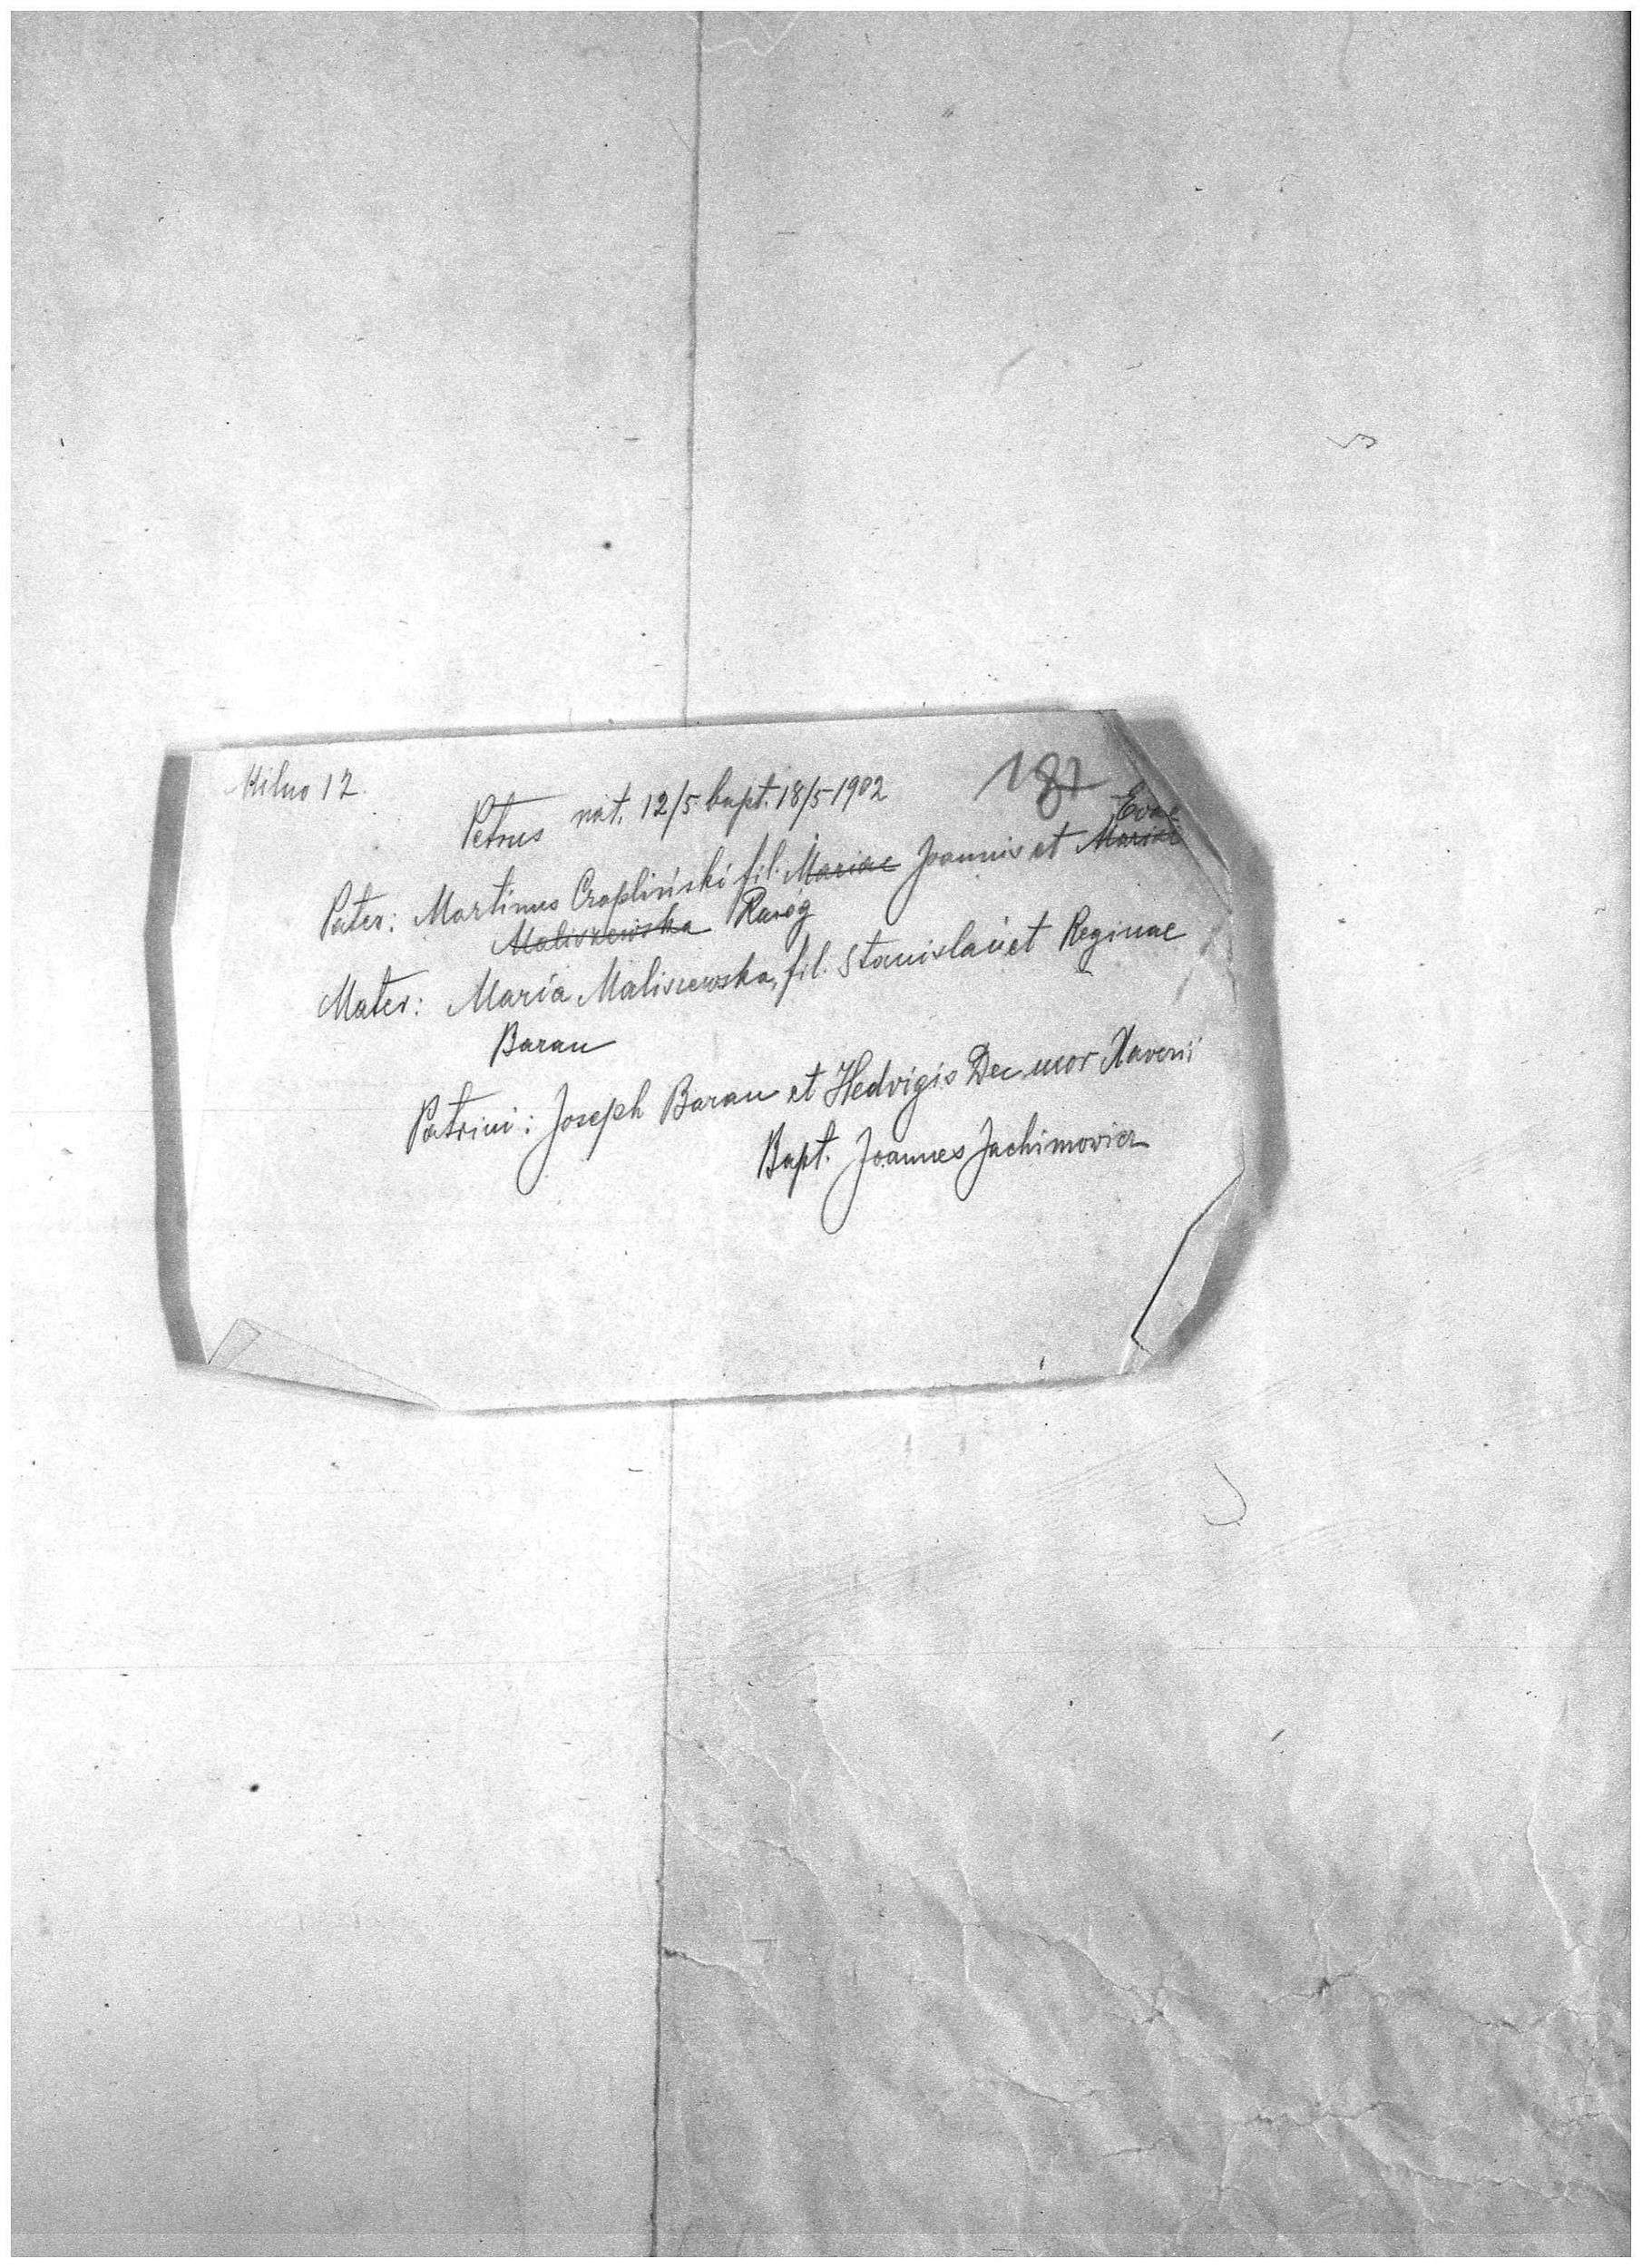 Milno 12. 187
Petrus nat. 12/5 bapt. 18/5 1902
Evae
Pater: Martinus Czapliński fil. Mariae Joannis et Mariae
Maliszewska Raróg
Mater: Maria Maliszewska, fil. Stanislai et Reginae
Baran
Patrini: Joseph Baran et Hedvigis Dec uxor Xaverii
Bapt. Joannes Jachimowicz